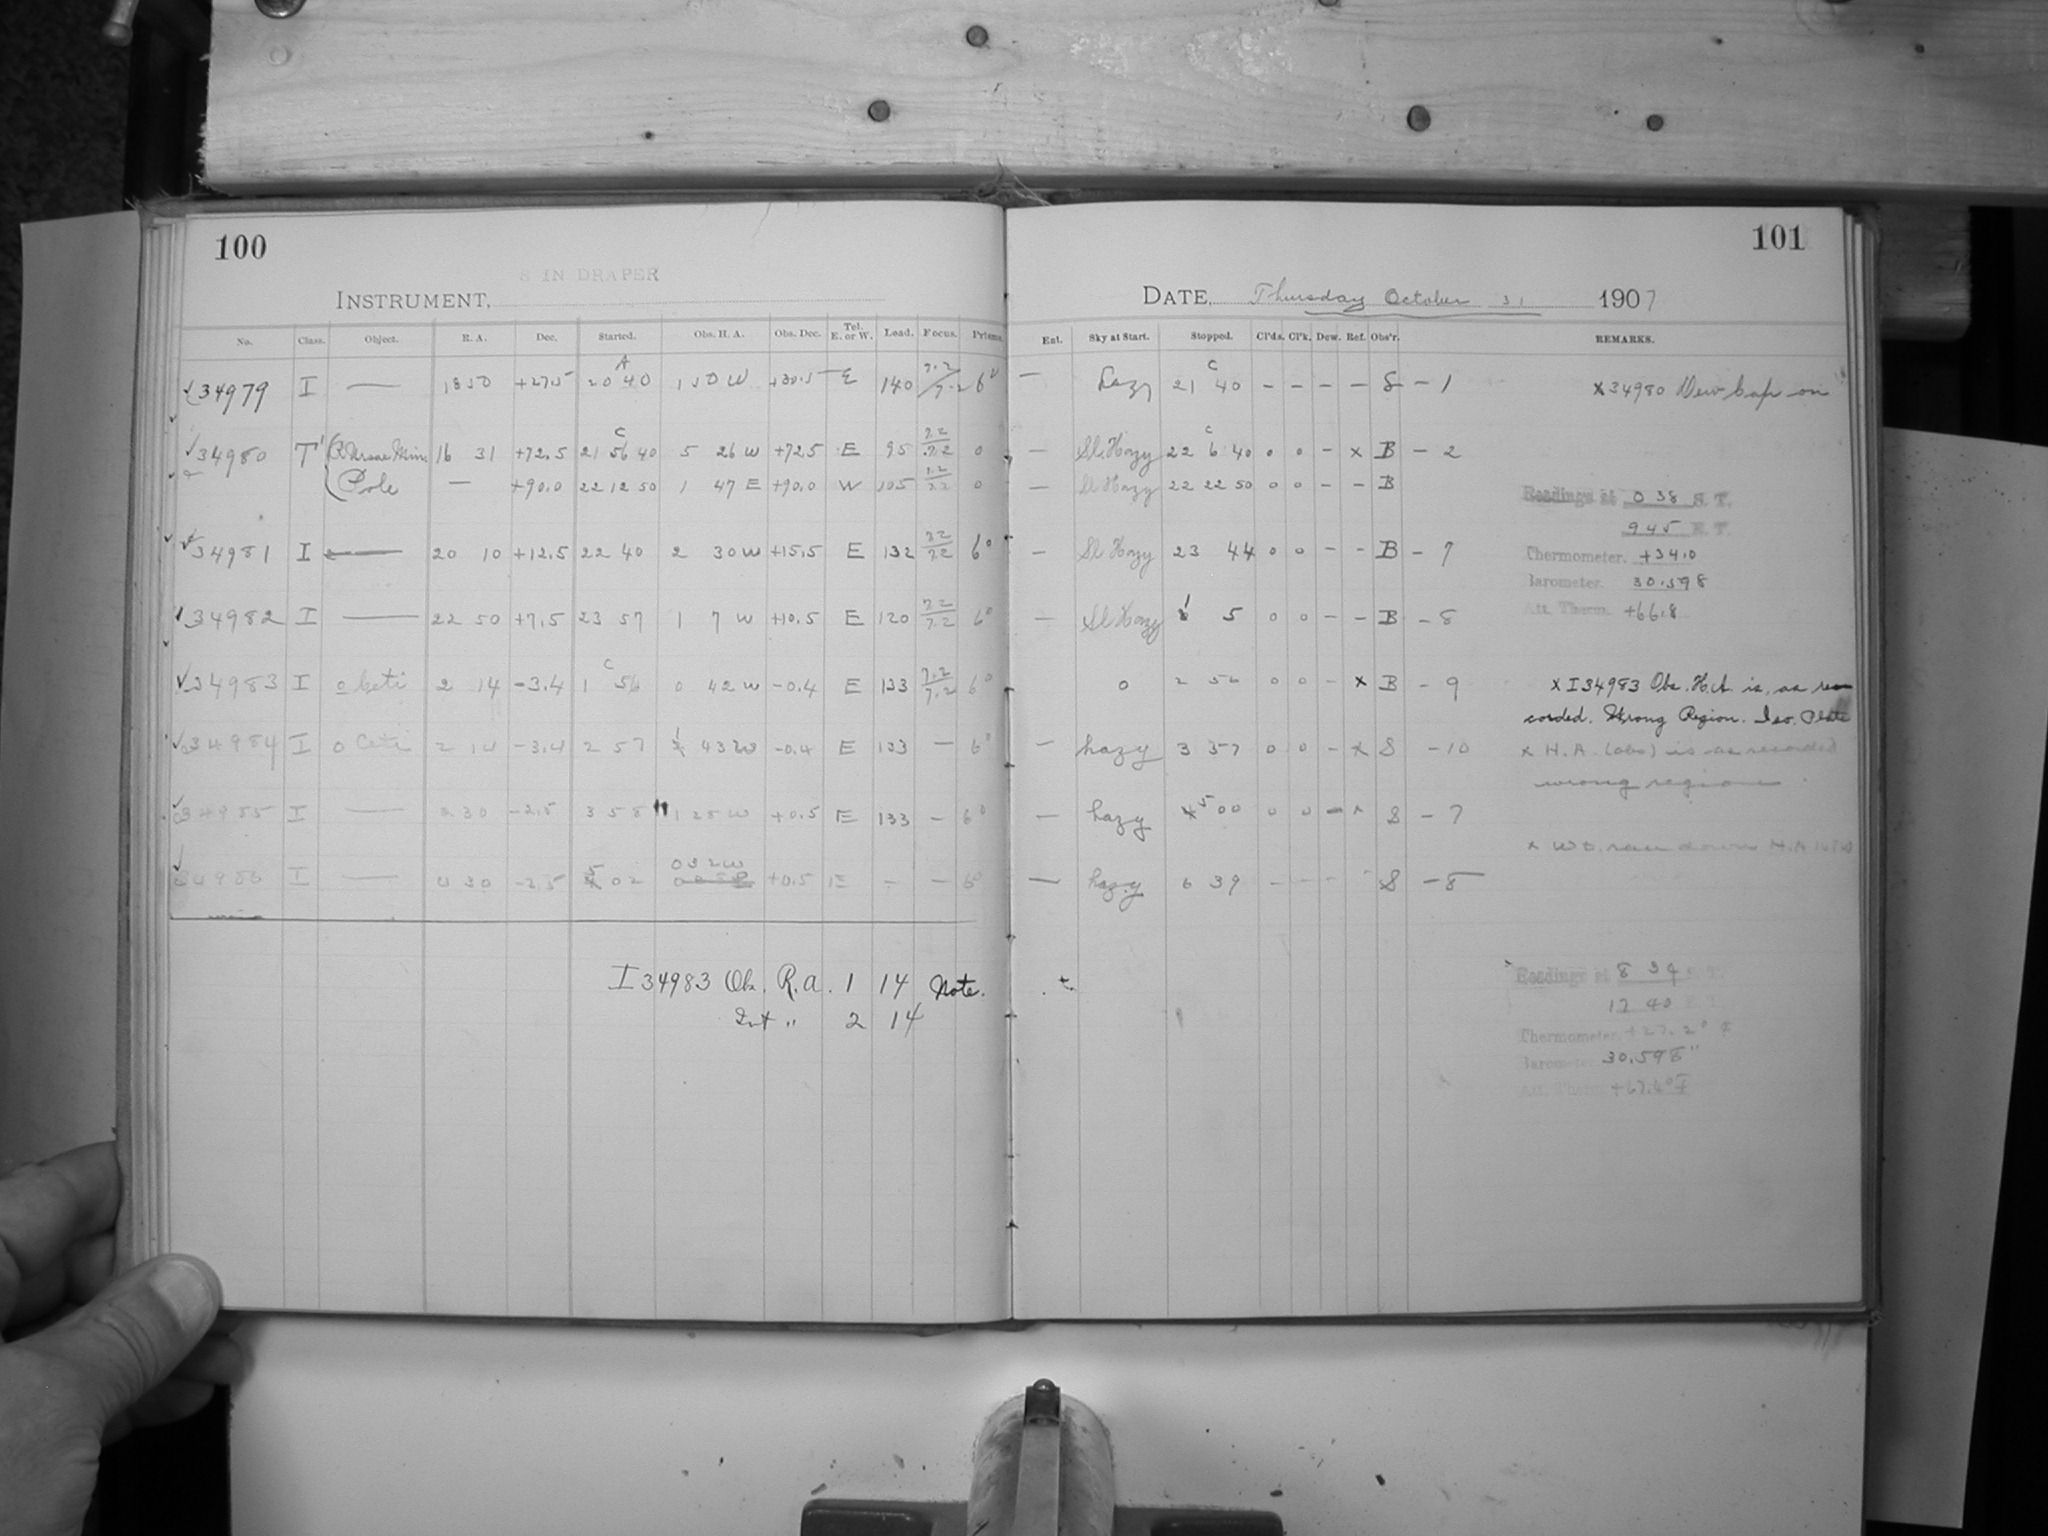 100
8 IN DRAPER
INSTRUMENT,
No. Class. Object. R. A. Dec. Started. Obs. H. A. Obs. Dec. Tel. E. or W. Load. Focus. Prisms.
34979 I — 18 50 +27.5 A 20 40 1 50 W +30.5 E 140 7.2/7.2 6°
34980 T' R Ursae Min. 16 31 +72.5 C 21 56 40 5 26 W +72.5 E 95 7.2/7.2 0
Pole — +90.0 22 12 50 1 47 E +90.0 W 105 7.2/7.2 0
34981 I — 20 10 +12.5 22 40 2 30 W +15.5 E 132 7.2/7.2 6°
34982 I — 22 50 +7.5 23 57 1 7 W +10.5 E 120 7.2/7.2 6°
34983 I o Ceti 2 14 -3.4 C 1 56 0 42 W -0.4 E 133 7.2/7.2 6°
34984 I o Ceti 2 14 -3.4 2 57 1 43 W -0.4 E 133 — 6°
34985 I — 30 -2.5 3 58 " 1 28 W +0.5 E 133 — 6°
34986 I — 30 -2.5 5 02 0 32 W +0.5 E — — 6°
I 34983 Obs. R.A. 1 14 Note.
Int " 2 14
101
DATE, Thursday October 31 1907
Ent. Sky at Start. Stopped. Cl'ds. Cl'k. Dew. Ref. Obs'r. REMARKS.
— hazy C 21 40 — — — — S — 1 x 34980 Dew Cap on
— Sl. Hazy C 22 6 40 0 0 — x B — 2
— Sl. Hazy 22 22 50 0 0 — — B
Readings at 0 38 S. T.
9 45 E. T.
— Sl. Hazy 23 44 0 0 — — B — 7
Thermometer. +34.0
Barometer. 30.598
Att. Therm. +66.8
— Sl. Hazy 1 5 0 0 — — B — 8
0 2 56 0 0 — x B — 9
x I 34983 Obs. H.A. is as re-
corded. Wrong Region. Iso. Plate
— hazy 3 57 0 0 — x S — 10
x H.A. (obs) is as recorded
wrong region.
— hazy 5 00 0 0 — x S — 7
— hazy 6 39 — — — — S — 8
Readings at 8 34 S. T.
17 40 E. T.
Thermometer. +27.2° F
Barometer. 30.598"
Att. Therm. +67.4° F